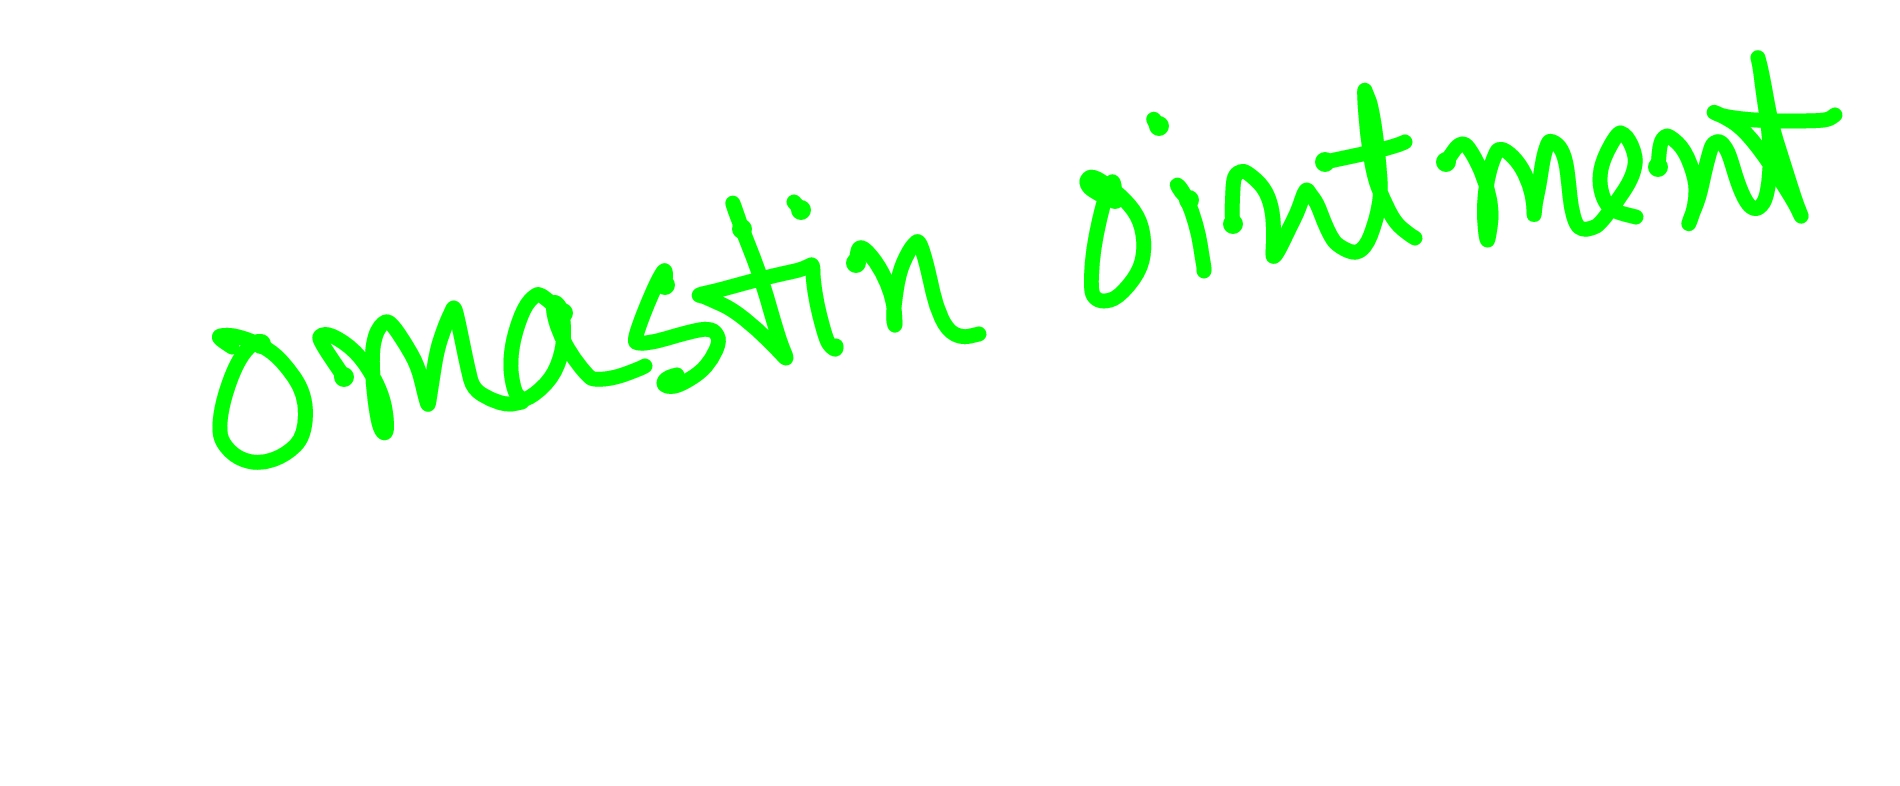 omastin ointment